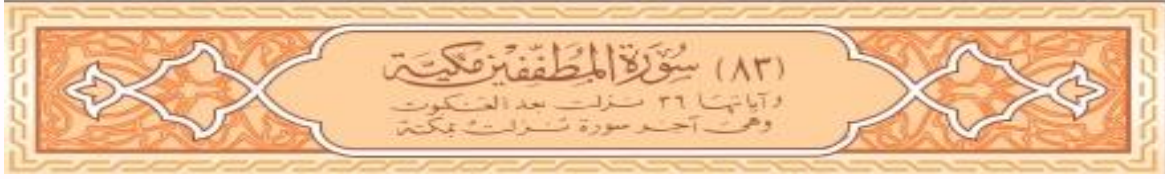 (٨٣) سُورَة المطَفِّفِين مَكيَّة
وآياتها ٣٦ نزلت بعد العنكبوت
وهى آخر سورة نزلت بمكة